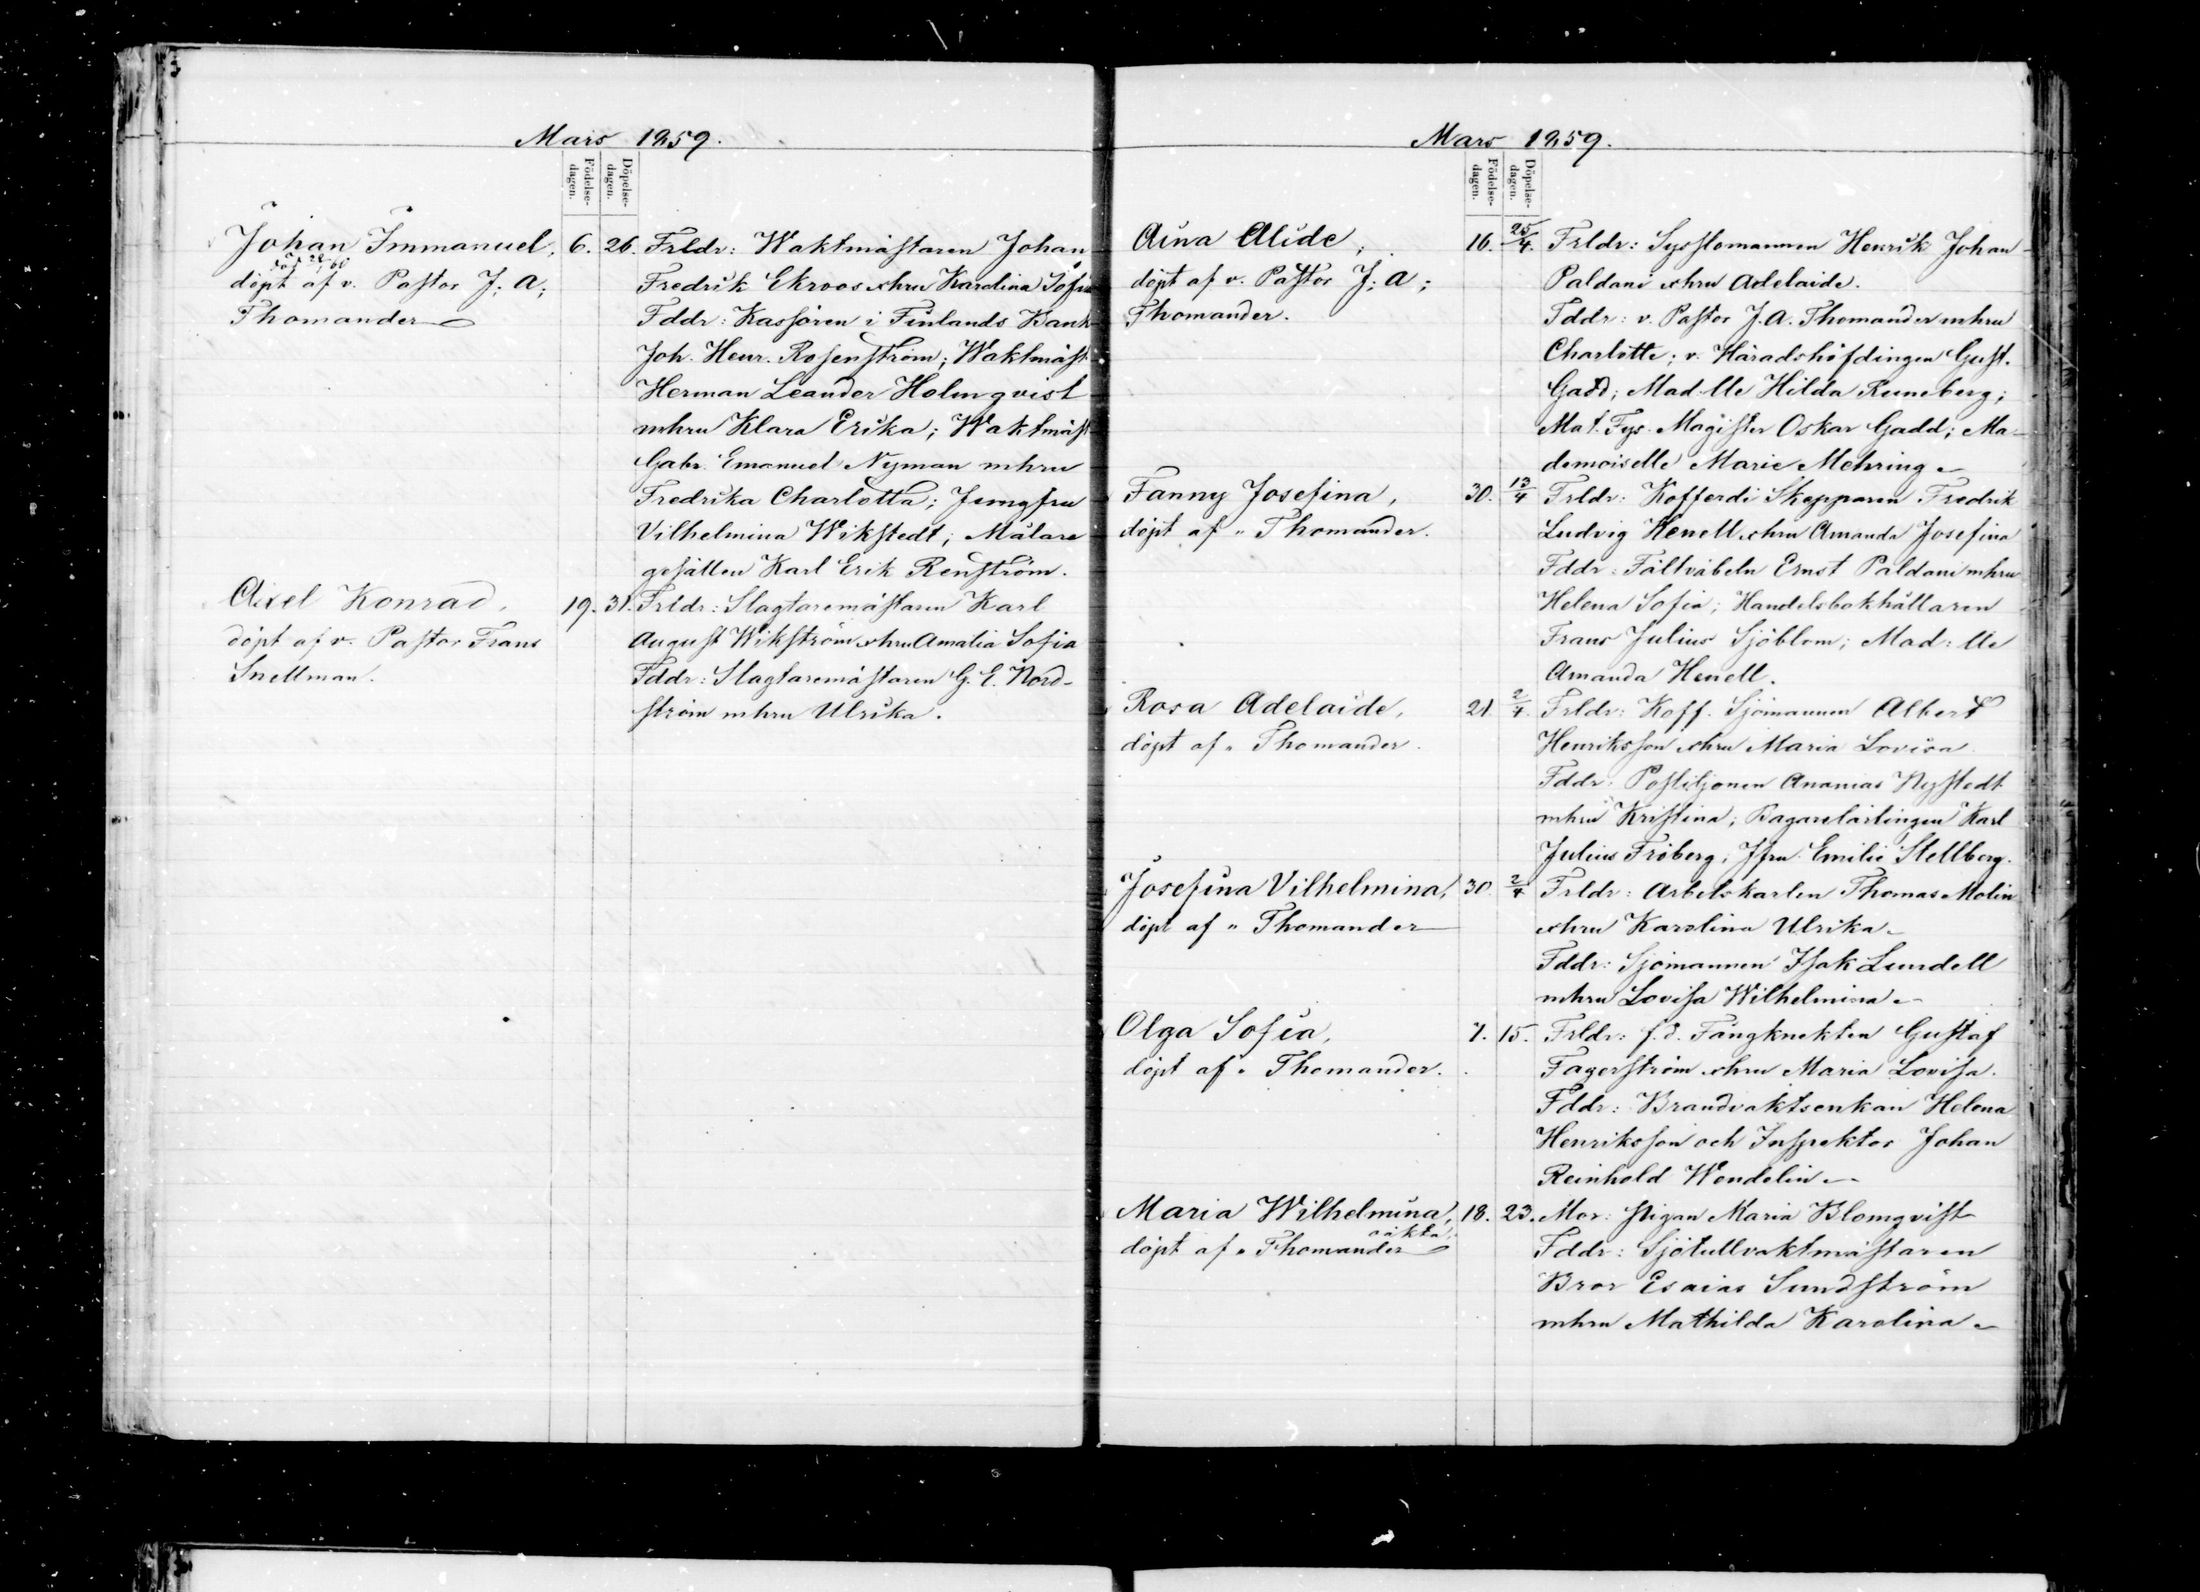 Mars 1859.
Födelse-
dagen.
Döpelse-
dagen.
Johan Immanuel, 6. 26. Frldr: Waktmästaren Johan
döpt af v. Pastor J; A; Fredrik Ekroos o hru Karolina Sofia
Thomander Fddr: Kassören i Finlands Bank
Joh. Henr. Rosenström; Waktmäst
Herman Leander Holmqvist
mhru Klara Erika; Waktmäst
Gabr. Emanuel Nyman mhru
Fredrika Charlotta; Jungfru
Vilhelmina Wikstedt; Målare
gesällen Karl Erik Renström.
Axel Konrad, 19. 31. Frldr: Slagtaremästaren Karl
döpt af v. Pastor Frans August Wikström o hru Amalia Sofia
Snellman. Fddr: Slagtaremästaren G. E. Nord-
ström mhru Ulrika.
Mars 1859.
Födelse-
dagen.
Döpelse-
dagen.
Aina Alide, 16. 25/4. Frldr: Sysslomannen Henrik Johan
döpt af v. Pastor J; A; Paldani o hru Adelaide.
Thomander. Fddr: v. Pastor J. A. Thomander mhru
Charlotte; v. Häradshöfdingen Gust.
Gadd; Mad-lle Hilda Runeberg;
Mat. Fys. Magister Oskar Gadd; Ma-
demoiselle Marie Mehring
Fanny Josefina, 30. 13/4 Frldr: Kofferdi Skepparen Fredrik
döpt af " Thomander. Ludvig Henell o hru Amanda Josefina
Fddr: Fältväbeln Ernst Paldani mhru
Helena Sofia; Handelsbokhållaren
Frans Julius Sjöblom; Mad: lle
Amanda Henell.
Rosa Adelaide, 21. 2/4. Frldr: Koff. Sjömannen Albert
döpt af " Thomander. Henriksson o hru Maria Lovisa
Fddr: Postiljonen Ananias Nystedt
mhru Kristina; Bagarelärlingen Karl
Julius Fröberg; Jfru Emilie Stellberg.
Josefina Vilhelmina, 30. 2/4 Frldr: Arbetskarlen Thomas Molin
döpt af " Thomander o hru Karolina Ulrika
Fddr: Sjömannen Isak Lundell
mhru Lovisa Wilhelmina
Olga Sofia, 7. 15. Frldr: f.d. Fångknekten Gustaf
döpt af " Thomander. Fagerström o hru Maria Lovisa.
Fddr: Brandvaktsenkan Helena
Henriksson och Inspektor Johan
Reinhold Wendelin
Maria Wilhelmina, 18. 23. Mor: Pigan Maria Blomqvist
oäkta;
döpt af " Thomander Fddr: Sjötullvaktmästaren
Bror Esaias Sundström
mhru Mathilda Karolina